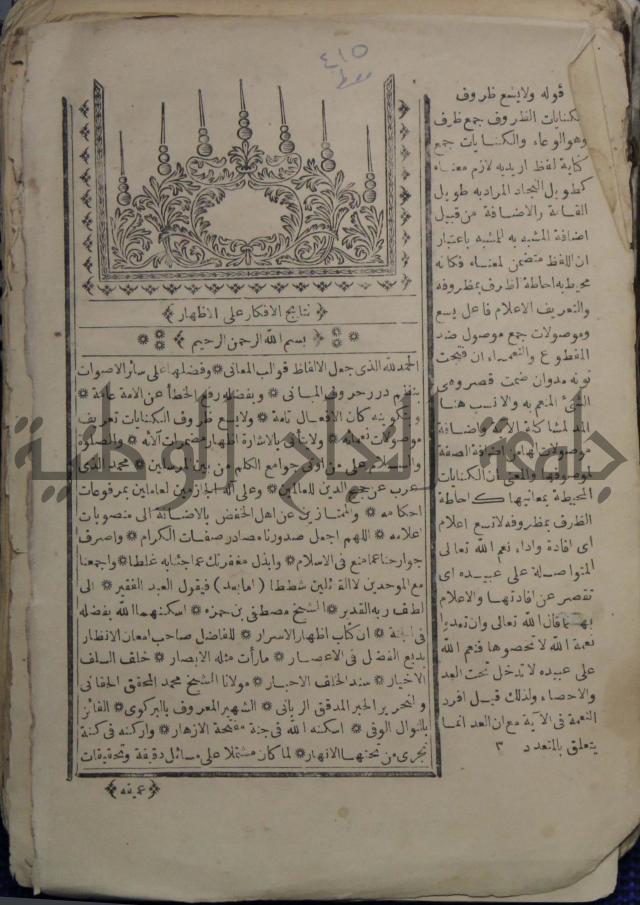 ٤١٥
قوله ولا يسع ظروف
الكنايات الظروف جمع ظرف
وهو الوعاء والكنايات جمع
كناية لفظ اريد به لازم معناه
كطويل النجاد المراد به طويل
القامة والاضافة من قبيل
اضافة المشبه به للمشبه باعتبار
ان اللفظ متضمن لمعناه فكانه
محيط به احاطة الظرف بمظروفه
والتعريف الاعلام فاعل يسع
وموصولات جمع موصول ضد
المقطوع والنعماء ان فتحت
نونه مدوان ضمت قصر وهى
الشئ المنعم به والانسب هنا
المد لمشاكلة الآلاء واضافة
موصولات الها من اضافة الصفة
لموصوفها والمعنى ان الكنايات
المحيطة بمعانيها كاحاطة
الظرف بمظروفه لا تسع اعلام
اى افادة واداء نعم الله تعالى
المتواصلة على عبيده اى
تقصر عن افادتها والاعلام
بها فان الله تعالى وان تعدوا
نعمة الله لا تحصوها فنعم الله
على عبيده لا تدخل تحت العد
والاحصاء ولذلك قيل افرد
النعمة فى الآية مع ان العد انما
يتعلق بالمتعدد ٣
﴿ نتايج الافكار على الاظهار ﴾
﴿ بسم الله الرحمن الرحيم ﴾
الحمد لله الذى جعل الالفاظ قوالب المعانى * وفضلها على سائر الاصوات
بتنظيم درر حروف المبانى * وبفضله رفع الخطأ عن الامة عامة *
وبتكوينه كان الافعال تامة * ولا يسع ظروف الكنايات تعريف
موصولات نعمائه * ولا يتأتى بالاشارة اظهار مضمرات آلائه * والصلوة
والسلام على من اوتى جوامع الكلم من بين المرسلين * محمد الذى
عرب عن جميع الدين للعالمين * وعلى آله الجازمين لعاملين بمرفوعات
احكامه * والممتازين عن اهل الخفض بالاضافة الى منصوبات
اعلامه * اللهم اجعل صدورنا مصادر صفات الكرام * واصرف
جوارحنا عما منع فى الاسلام * وابذل مغفرتك عما جئنا به غلطا * واجمعنا
مع الموحدين لا القائلين شططا ( اما بعد ) فيقول العبد الفقير * الى
لطف ربه القدير * الشيخ مصطفى بن حمزه * اسكنهما الله بفضله
فى الجنة * ان كتاب اظهار الاسرار * للفاضل صاحب امعان الانظار
بديع الفضل فى الاعصار * ما رأت مثله الابصار * خلف السلف
الاخيار * سند الخلف الاحبار * مولانا الشيخ محمد المحقق الحقانى
والنحرير الحبر المدقق الربانى * الشهير المعروف بالبركوى * الفائز
بالنوال الوفى * اسكنه الله فى جنة مفتحة الازهار * واركنه فى كنة
تجرى من تحتها الانهار * لما كان مشتملا على مسائل دقيقة وتحقيقات
﴿ عميقه ﴾
جامعة النجاح الوطنية